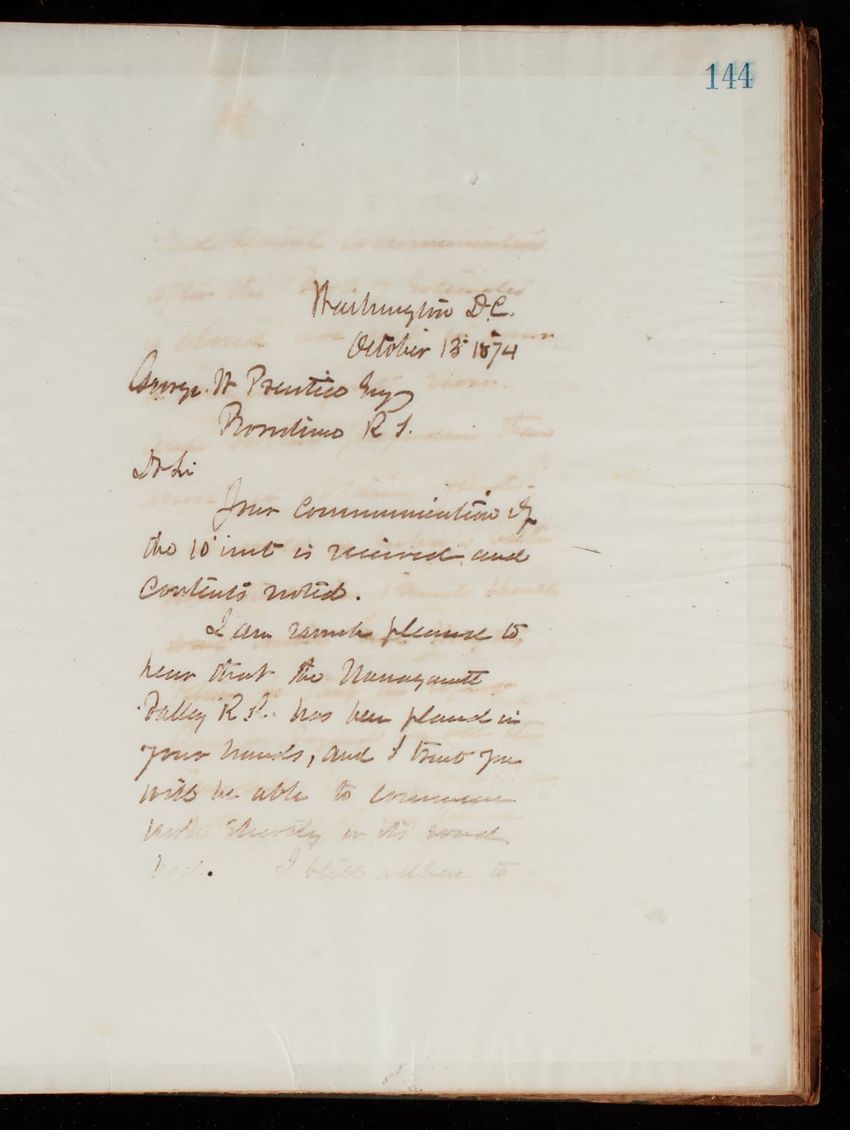 144
Washington D.C.
October 13 1874
George W Prentice Esq
Providence R I.
Dr Sir
Your communication of
the 10 inst is received and
contents noted.
I am much pleased to
hear that the Narragansett
Valley R R. has been placed in
your hands, and I trust you
will be able to commence
work shortly on its road
bed. I still adhere to